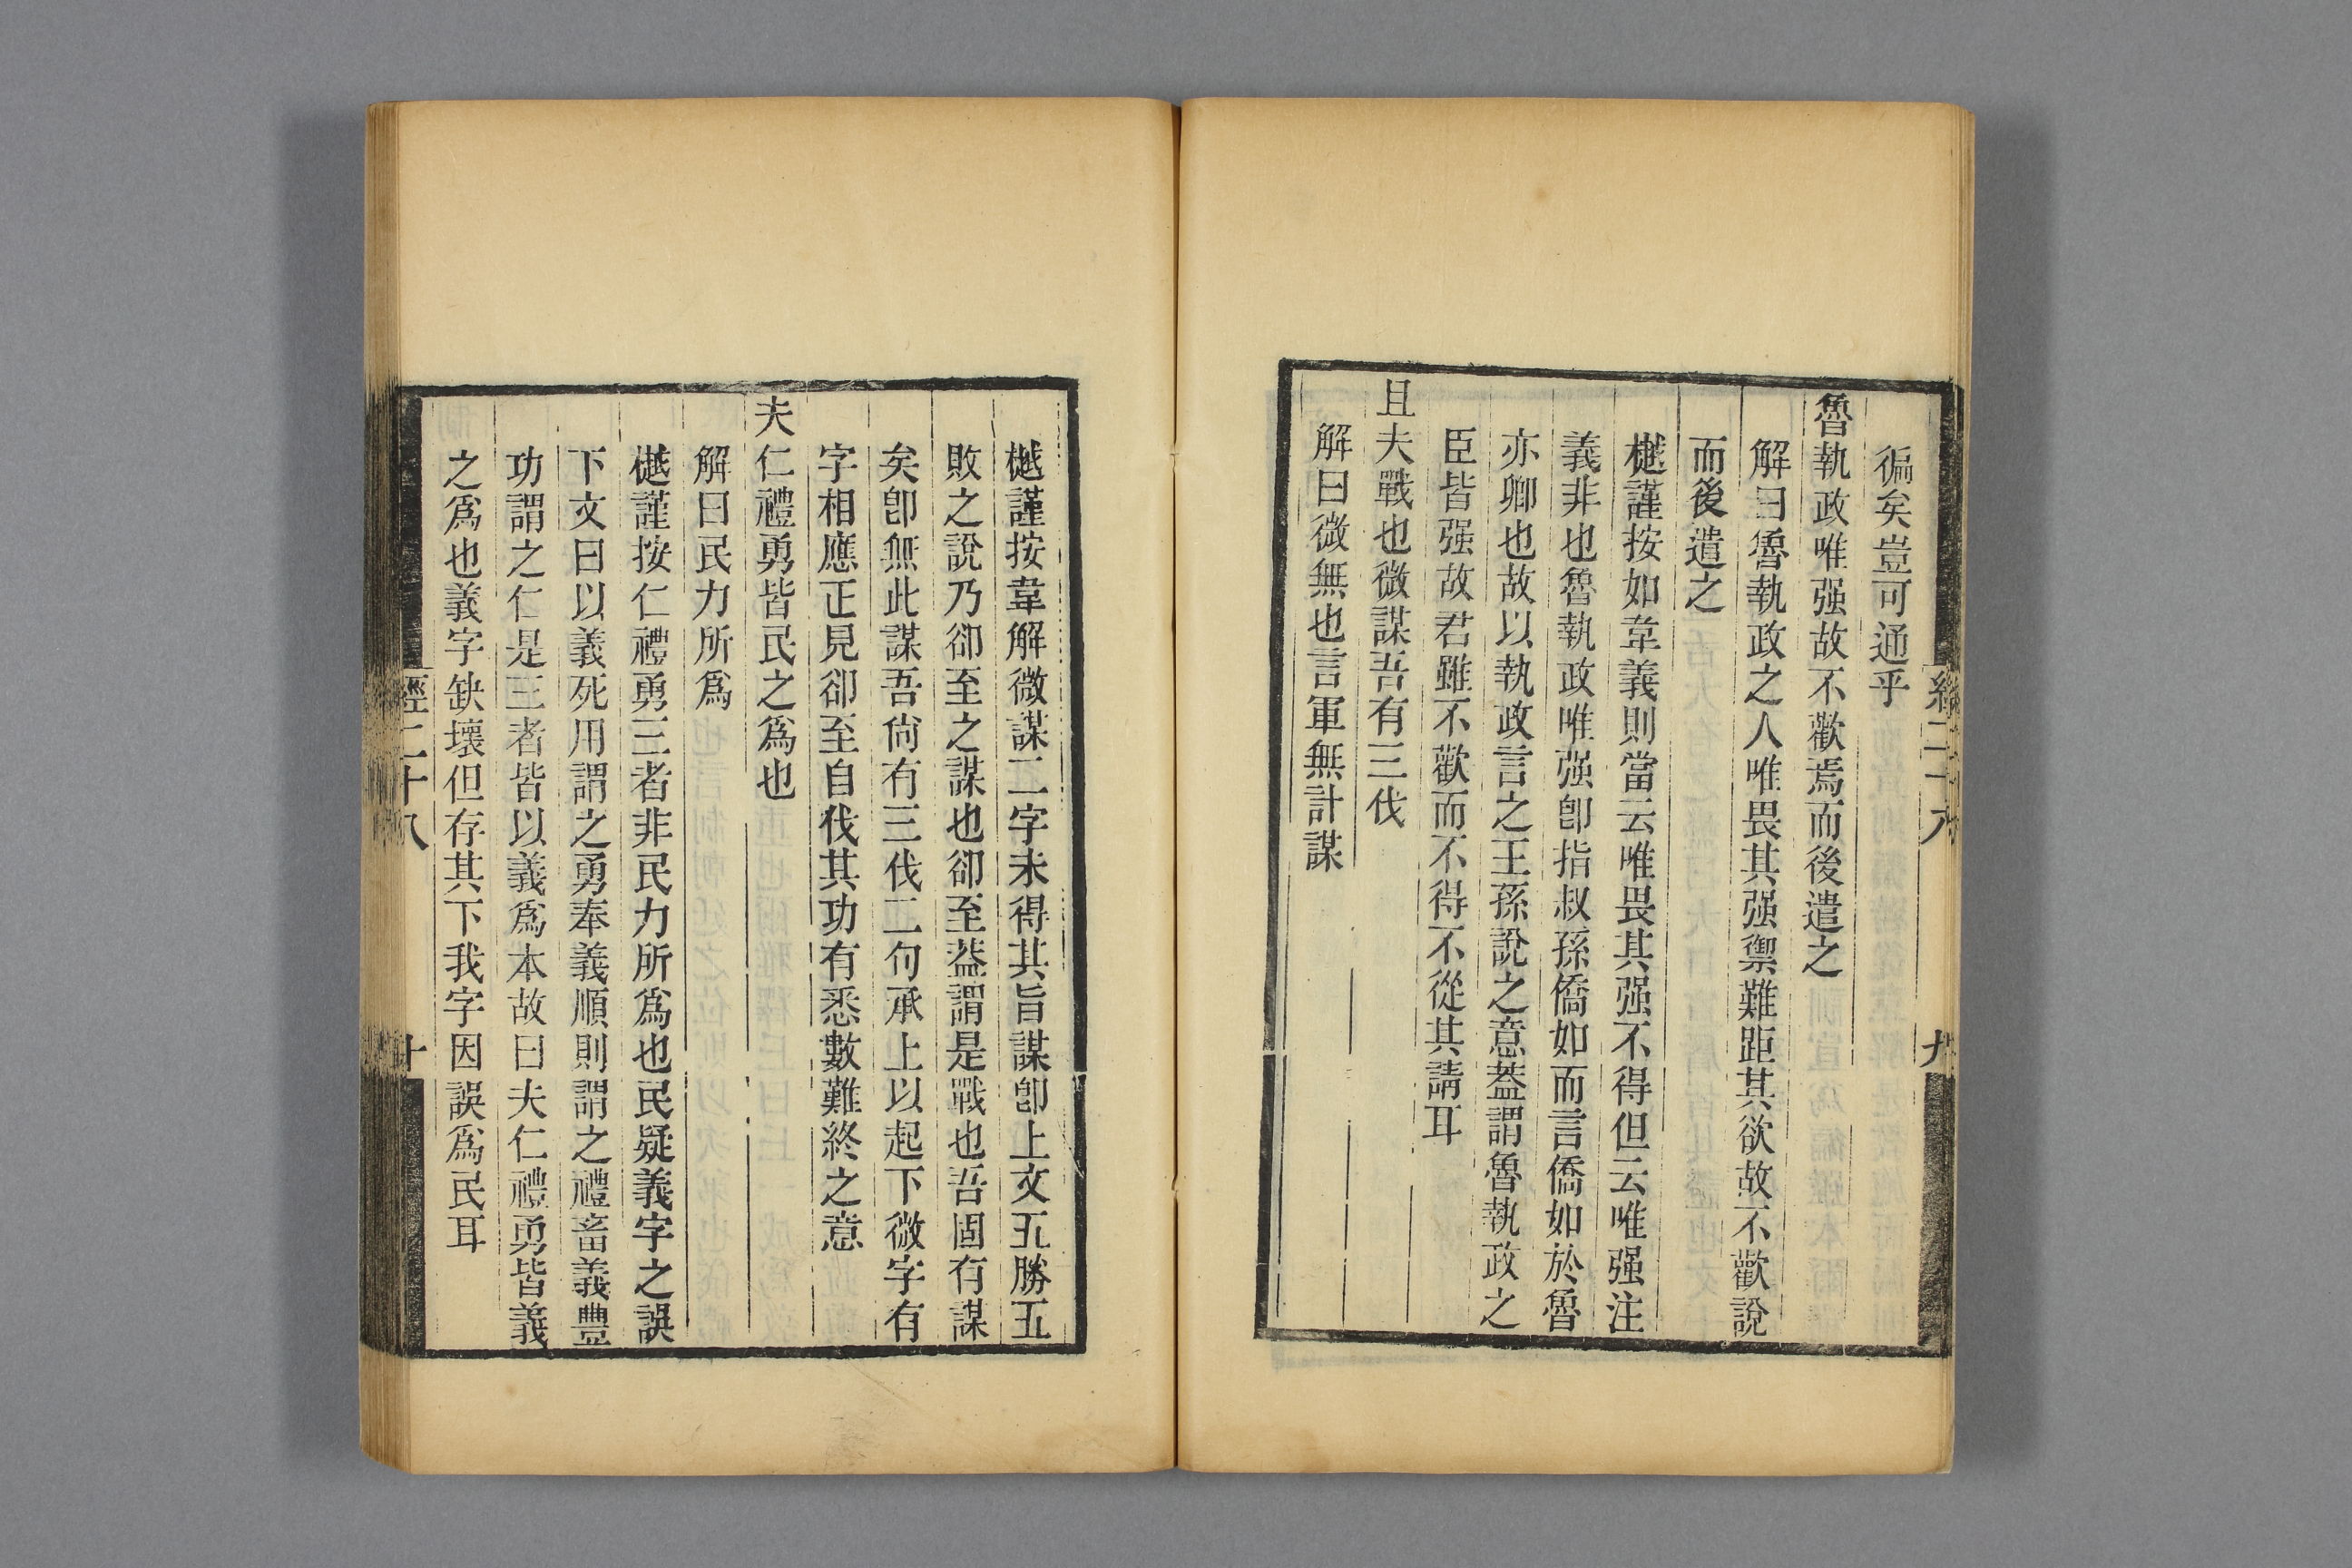 徧矣豈可通乎
魯執政唯强故不歡焉而後遣之
解曰魯執政之人唯畏其强禦難距其欲故不歡說
而後遣之
樾謹按如韋義則當云唯畏其强不得但云唯强注
義非也魯執政唯强卽指叔孫僑如而言僑如於魯
亦卿也故以執政言之王孫說之意葢謂魯執政之
臣皆强故君雖不歡而不得不從其請耳
且夫戰也微謀吾有三伐
解曰微無也言軍無計謀
樾謹按韋解微謀二字未得其旨謀卽上文五勝五
敗之說乃卻至之謀也卻至葢謂是戰也吾固有謀
矣卽無此謀吾尙有三伐二句承上以起下微字有
字相應正見卻至自伐其功有悉數難終之意
夫仁禮勇皆民之爲也
解曰民力所爲
樾謹按仁禮勇三者非民力所爲也民疑義字之誤
下文曰以義死用謂之勇奉義順則謂之禮畜義豐
功謂之仁是三者皆以義爲本故曰夫仁禮勇皆義
之爲也義字缺壞但存其下我字因誤爲民耳
經二十八
十
九